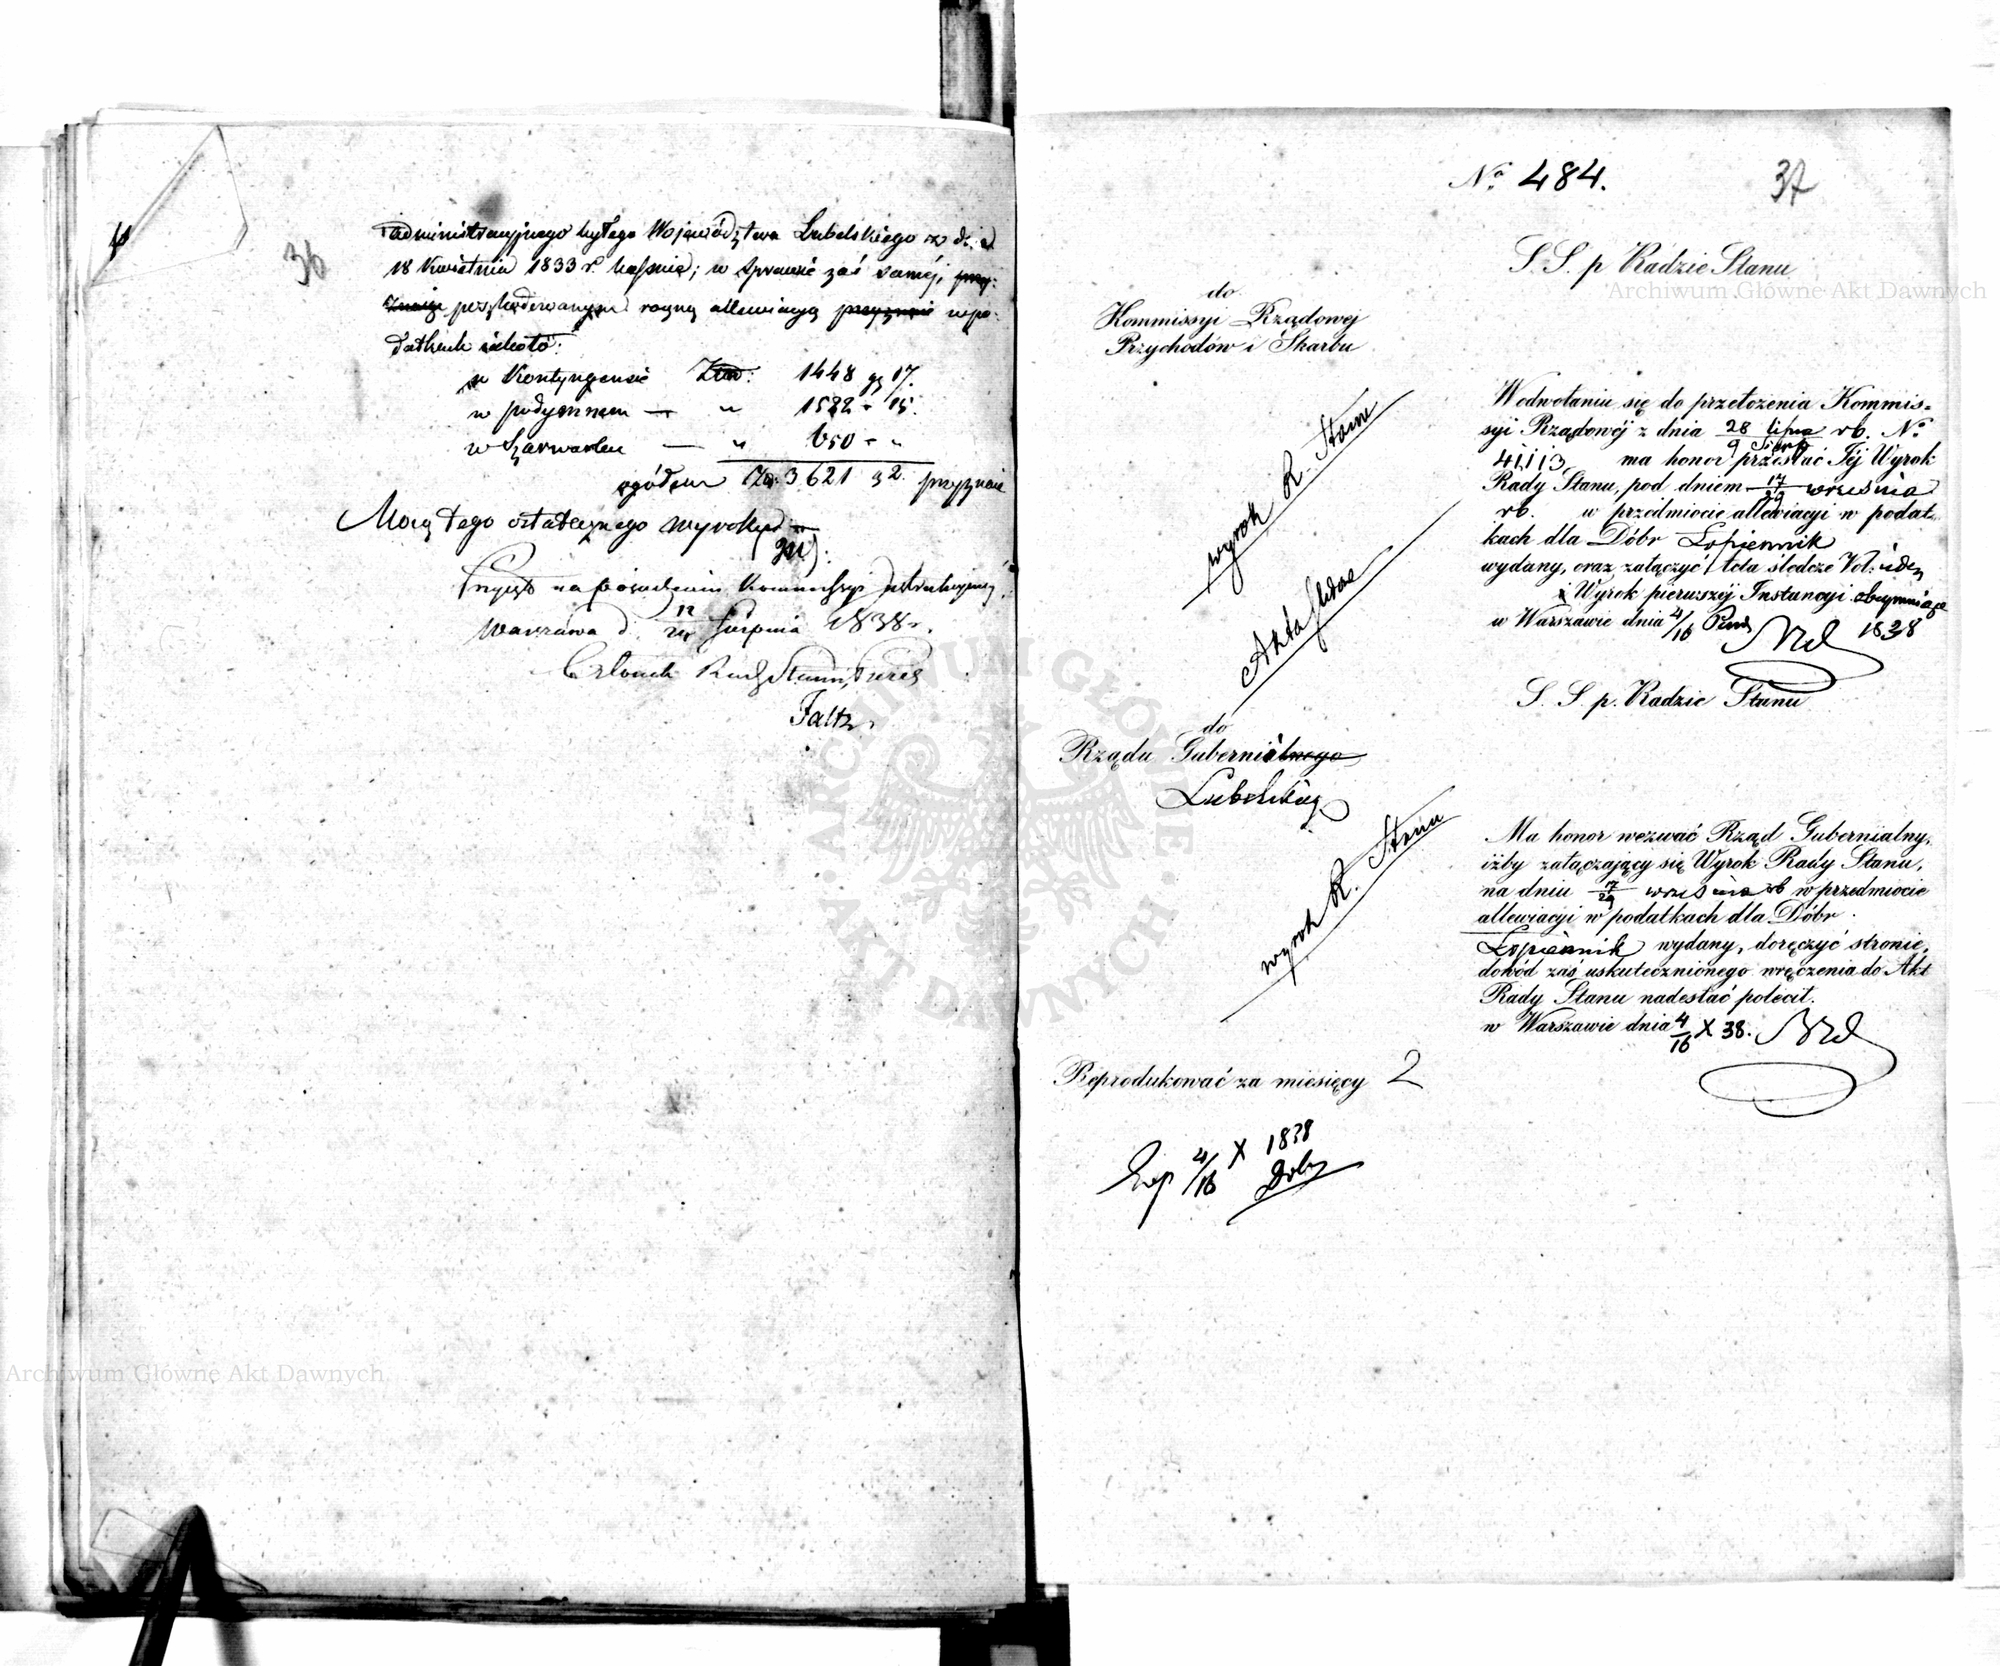 36
administracyjnego byłego Województwa Lubelskiego z d.
18 Kwietnia 1833 r. kassuie; w sprawie zaś samej, przy-
znaie poszkodowanym roczną allewiacyą przyznaie w po-
datkach iakoto:
w Kontyngensie Złp: 1448 gr 17.
w podymnem — " 1522 - 15.
w Szarwarku — " 650 - "
ogółem Złp. 3621 g 2. przyznaie
Mocą tego ostatecznego wyroku
Przyięto na posiedzeniu Kommissyi Instrukcyjnej
Warszawa d. 12/24 Sierpnia 1838 r.
Członek Rady Stanu, Prezes
Faltz.
No. 484.
37
S. S. p Radzie Stanu
do
Kommissyi Rządowej
Przychodów i Skarbu
wyrok R. Stanu
Akta śledcze
W odwołaniu się do przełożenia Kommis=
syi Rządowéj z dnia 28 lipca / 9 Sierp rb. No.
41,113, ma honor przesłać Téj Wyrok
Rady Stanu, pod dniem 17/29 września
rb. w przedmiocie allewiacyi w podat-
kach dla Dóbr Łopiennik
wydany, oraz załączyć Acta śledcze Vol: ieden
i Wyrok pierwszéj Instancyi obeymuiące
w Warszawie dnia 4/16 Paźd 1838
S. S. p. Radzie Stanu
do
Rządu Gubernialnego
Lubelskiego
wyrok R. Stanu
Ma honor wezwać Rząd Gubernialny,
iżby załączający się Wyrok Rady Stanu,
na dniu 17/29 września rb w przedmiocie
allewiacyi w podatkach dla Dóbr
Łopiennik wydany, doręczyć stronie,
dowód zaś uskutecznionego wręczenia do Akt
Rady Stanu nadesłać polecił.
w Warszawie dnia 4/16 X 38.
Reprodukować za miesięcy 2
4/16 X 1838
Archiwum Główne Akt Dawnych
Archiwum Główne Akt Dawnych
ARCHIWUM GŁÓWNE AKT DAWNYCH